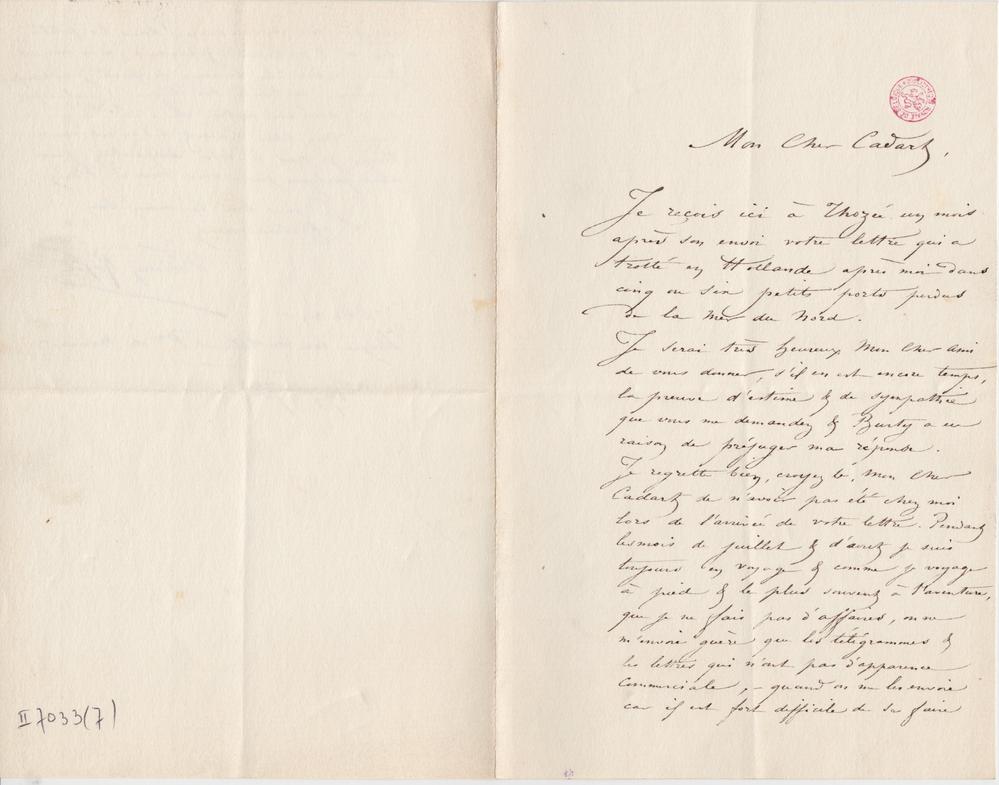 Mon Cher Cadart,
Je reçois ici à Thozée un mois
après son envoi votre lettre qui a
trotté en Hollande après moi dans
cinq ou six petits ports perdus
de la Mer du Nord.
Je serai très heureux Mon Cher Ami
de vous donner, s'il en est encore temps,
la preuve d'estime & de sympathie
que vous me demandez & Burty a eu
raison de préjuger ma réponse.
Je regrette bien, croyez le, mon Cher
Cadart de n'avoir pas été chez moi
lors de l'arrivée de votre lettre. Pendant
les mois de juillet & d'aout je suis
toujours en voyage & comme je voyage
à pied & le plus souvent à l'aventure,
que je ne fais pas d'affaires, on ne
m'envoie guère que les télégrammes &
les lettres qui n'ont pas d'apparence
Commerciale, – quand on me les envoie
car il est fort difficile de se faire
II 7033(7)